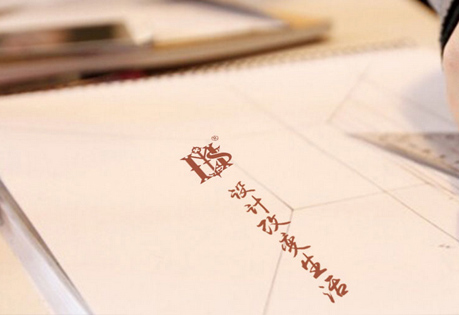 HS®
设计改变生活